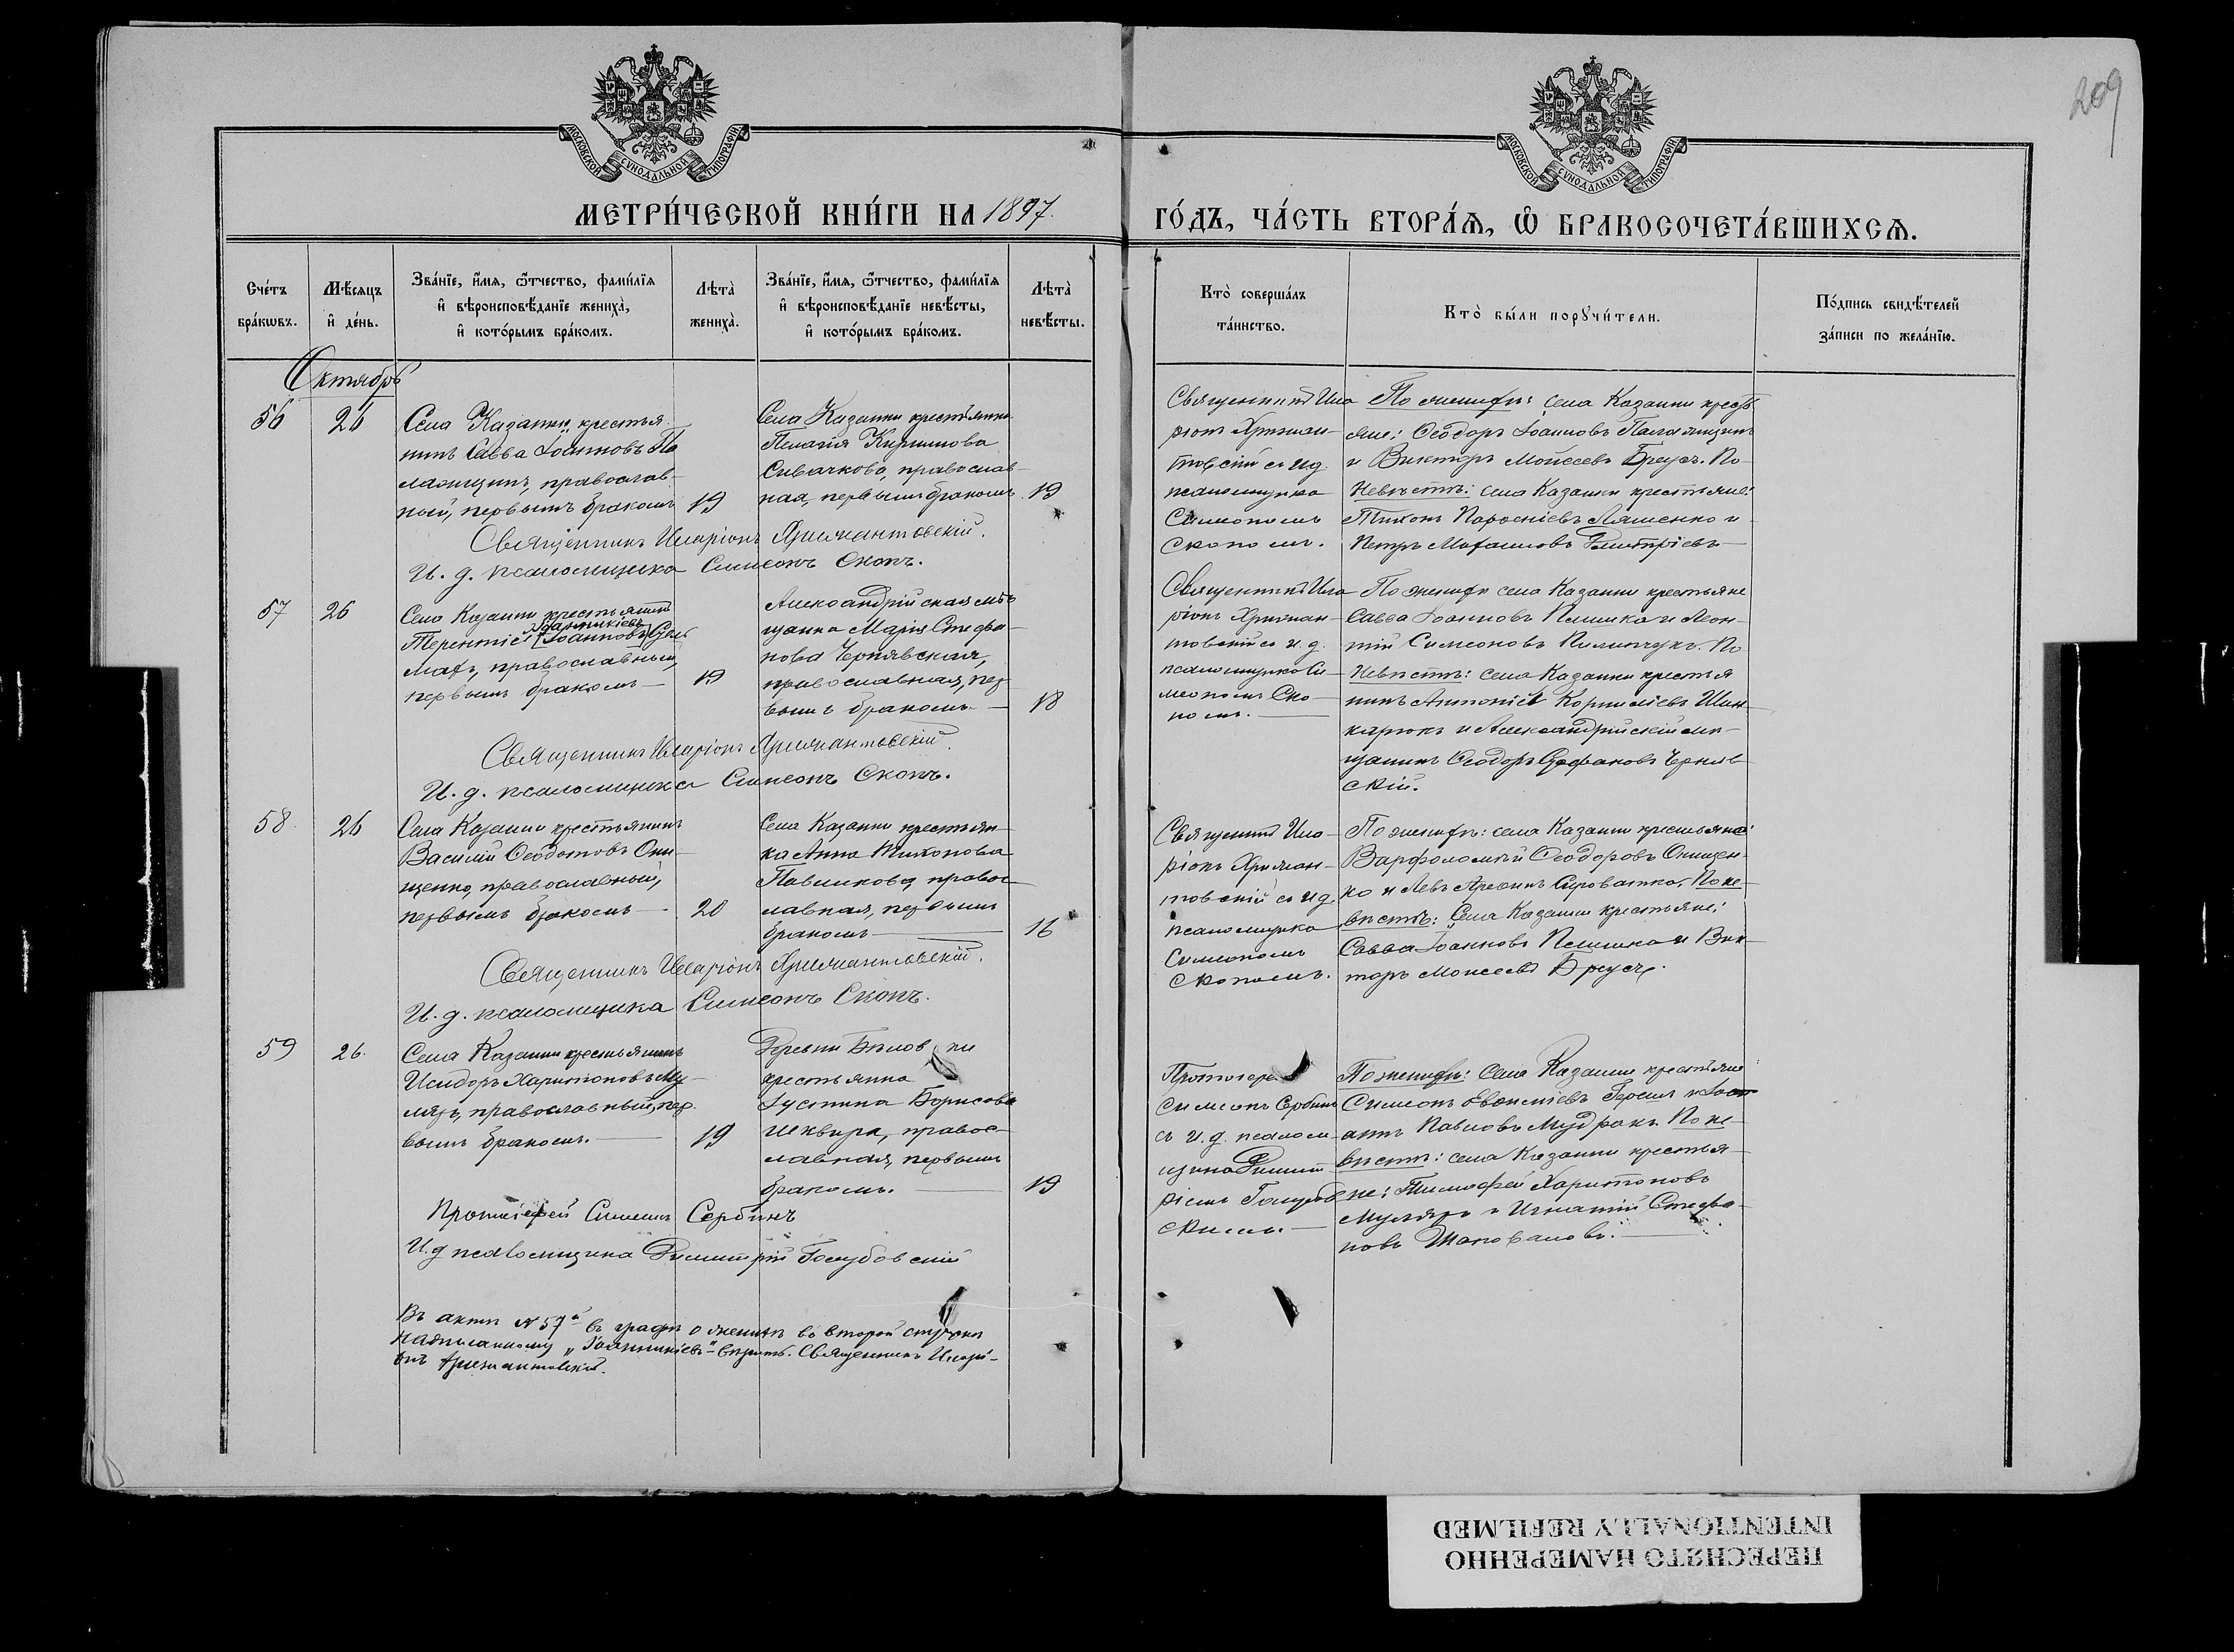 209
МОСКОВСКОЙ СѴНОДАЛЬНОЙ ТИПОГРАФІИ
МОСКОВСКОЙ СѴНОДАЛЬНОЙ ТИПОГРАФІИ
МЕТРИ́ЧЕСКОЙ КНИ́ГИ НА 1897.
ГО́ДЪ, ЧА́СТЬ ВТОРА́Я, Ѽ БРАКОСОЧЕТА́ВШИХСЯ.
Сче́тъ
бра́кѡвъ.
Мѣ́сяцъ
и҆ де́нь.
Зва́нїе, и҆́мя, ѻ҆́тчество, фами́лїя
и҆ вѣроисповѣ́данїе жениха̀,
и҆ кото́рымъ бра́комъ.
Лѣта̀
жениха̀.
Зва́нїе, и҆́мя, ѻ҆́тчество, фами́лїя
и҆ вѣроисповѣ́данїе невѣ́сты,
и҆ кото́рымъ бра́комъ.
Лѣта̀
невѣ́сты.
Кто̀ соверша́лъ
та́инство.
Кто̀ бы́ли порꙋчи́тели.
По́дпись свидѣ́телей
за́писи по жела́нїю.
Октябрь
56
26
Села Казанки крестья
нинъ Савва Іоанновъ Па
ламщинъ, православ-
ный, первымъ бракомъ
19
Села Казанки крестьянка
Пелагія Кириллова
Сивачкова, православ-
ная, первымъ бракомъ
19
Священникъ Ила
ріонъ
товскій съ и д.
псаломщика
Симеономъ
Скопомъ.
По женихѣ: села Казанки кресть
яне: Ѳеодоръ Іоанновъ
и Викторъ Моисеевъ Бреусъ. По
Невѣстѣ: села Казанки крестьяне:
Тихонъ Ляшенко и
Петръ Димитріевъ
Священникъ Иларіонъ
И. д. псаломщика Симеонъ Скопъ.
57
26
Села Казанки крестьянинъ
Іоанникіевъ
Терентій Іоанновъ
православный,
первымъ бракомъ
19
Александрійская мѣ
щанка Марія Стефа-
нова Чернявская,
православная, пер
вымъ бракомъ
18
Священникъ Ила
ріонъ
товскій съ и. д.
псаломщика Си
меономъ Ско-
помъ.
По женихѣ села Казанки крестьяне
Савва Іоанновъ и Леон-
тій Симеоновъ По
Невѣстѣ: села Казанки крестья
нинъ Антоній Корниліевъ Шин
карюкъ и Александрійскій мѣ-
щанинъ Ѳеодоръ Стефановъ Черняв
скій.
Священникъ Иларіонъ
И. д. псаломщика Симеонъ Скопъ.
58.
26
Села Казанки крестьянинъ
Василій Ѳеодотовъ Они-
щенко, православный,
первымъ бракомъ
20
Села Казанки крестьян-
ка Анна Тихонова
Павликова, правос
лавная, первымъ
бракомъ
16
Священникъ Ила-
ріонъ
товскій съ и д.
псаломщика
Симеономъ
Скопомъ.
По женихѣ: села Казанки крестьяне:
Варѳоломей Ѳеодоровъ Онищен-
ко и Левъ Сироватко, По не-
вѣстѣ: Села Казанки крестьяне:
Савва Іоанновъ и Вик-
торъ Моисеевъ Бреусъ.
Священникъ Иларіонъ
И. д. псаломщика Симеонъ Скопъ.
59
26.
Села Казанки крестьянинъ
Исидоръ Харитоновъ Му-
ляръ, православный, пер
вымъ бракомъ.
19
Деревни
крестьянка
Іустина Борисова
Шеквира, правос-
лавная, первымъ
бракомъ.
19
Протоіерей
Симеонъ Сербинъ
съ и. д. псалом
щика Димит
ріемъ Голубов
скимъ.
По женихѣ: Села Казанки крестьяне:
Симеонъ Евѳиміевъ и Іоан
Павловъ Мудракъ. По не-
вѣстѣ: села Казанки крестья-
не: Тимоѳей Харитоновъ
Муляръ и Игнатій Стефа-
новъ Шаповаловъ.
Протоіерей Симеонъ Сербинъ
И. д псаломщика Димитрій Голубовскій
Въ актѣ № 57й въ графѣ о женихѣ во второй строкѣ
надписанному „Іоанникіевъ" вѣрить. Священникъ Илары-
онъ
ПЕРЕСНЯТО НАМЕРЕННО
INTENTIONALLY REFILMED